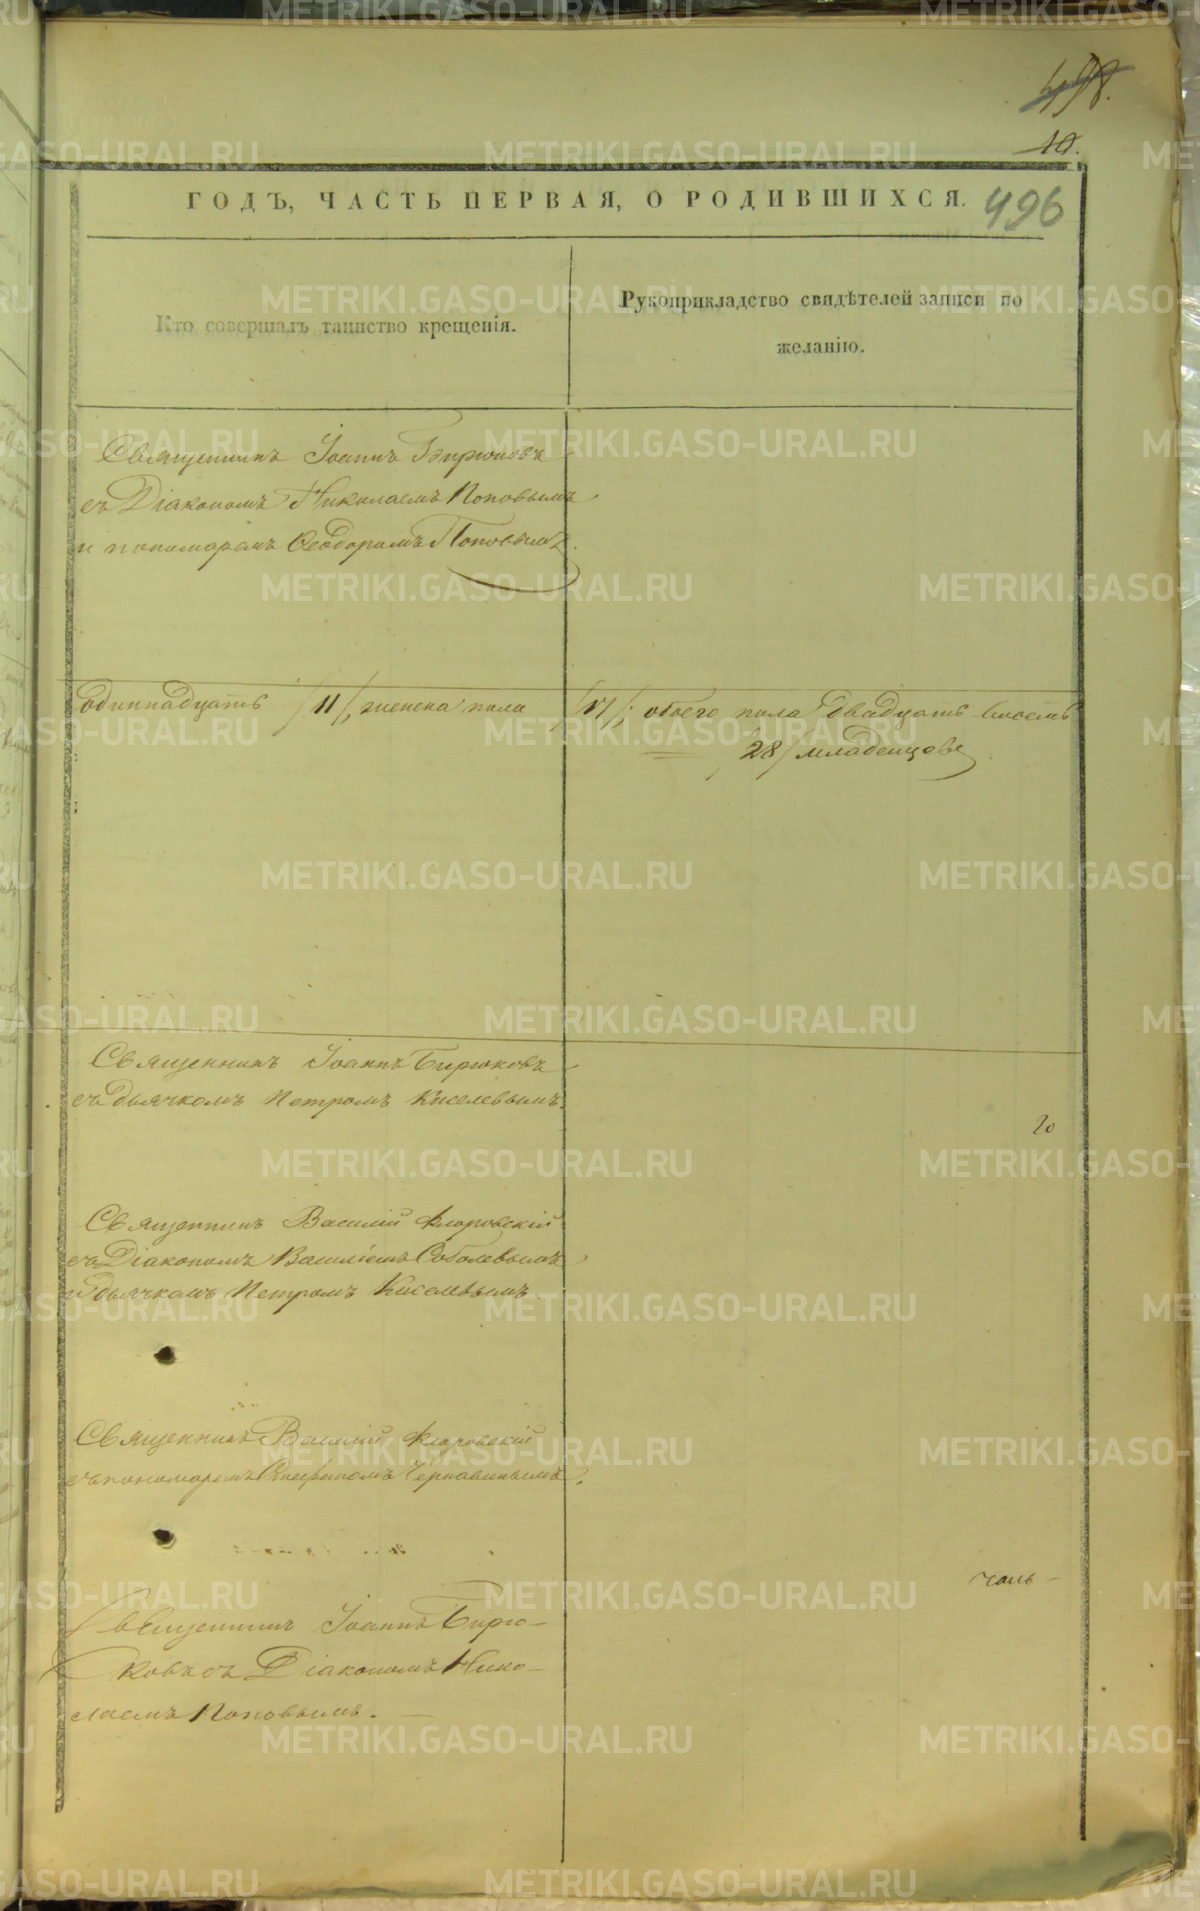 498.
10.
ГОДЪ, ЧАСТЬ ПЕРВАЯ, О РОДИВШИХСЯ. 496
Кто совершалъ таинство крещенія.
Рукоприкладство свидѣтелей записи по
желанію.
Священникъ Іоаннъ Бирюковъ
съ Діакономъ Николаемъ Поповымъ
и пономаремъ Ѳеодоромъ Поповымъ.
одиннадцать /11/, женска пола /17/; обоего пола двадцать восемь
/28/ младенцовъ
Священникъ Іоаннъ Бирюковъ
съ дьячкомъ Петромъ Киселевымъ.
Священникъ Василій Флоровскій
съ Діакономъ Василіемъ Соболевымъ
и дьячкомъ Петромъ Киселевымъ.
Священникъ Василій Флоровскій
съ пономаремъ Чернавинымъ.
Священникъ Іоаннъ Бирю-
ковъ съ Діакономъ Нико-
лаемъ Поповымъ.
METRIKI.GASO-URAL.RU